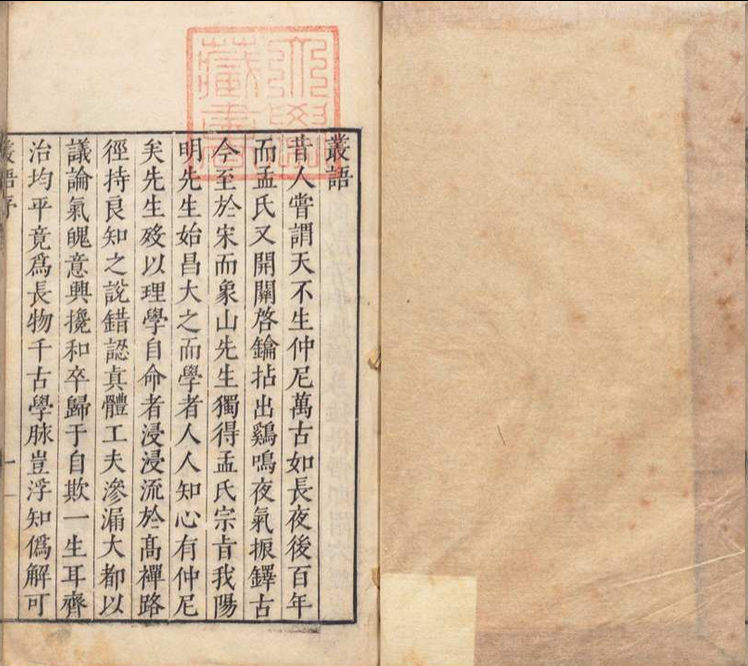 叢語
昔人嘗謂天不生仲尼萬古如長夜後百年
而孟氏又開關啓鑰拈出鷄鳴夜氣振鐸古
今至於宋而象山先生獨得孟氏宗旨我陽
明先生始昌大之而學者人人知心有仲尼
矣先生歿以理學自命者浸浸流於高禪路
徑持良知之說錯認真體工夫滲漏大都以
議論氣魄意興攙和卒歸于自欺一生耳齊
治均平竟爲長物千古學脉豈浮知僞解可
叢語序
一
藏書